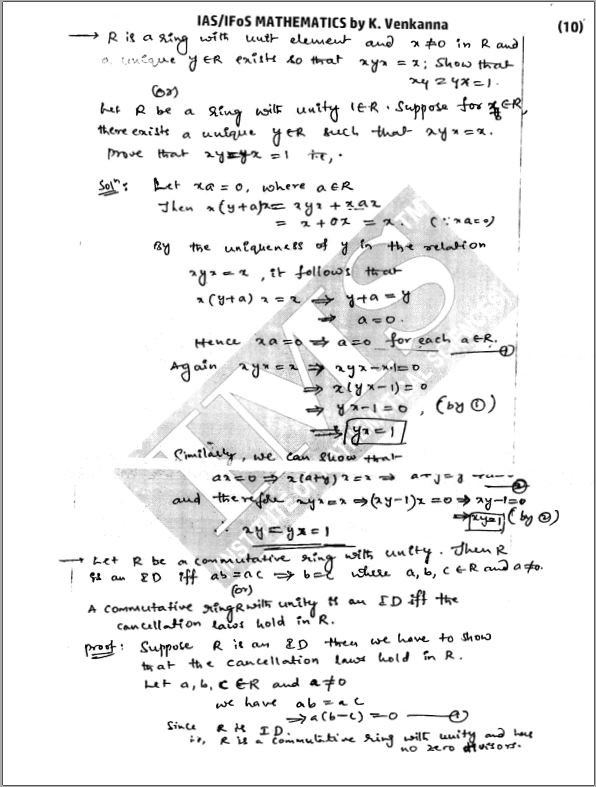 IAS/IFoS MATHEMATICS by K. Venkanna
(10)
→ R is a ring with unit element and x≠0 in R and
a unique y∈R exists so that xyx = x; Show that
xy = yx = 1.
(or)
Let R be a ring with unity 1∈R. Suppose for x∈R,
there exists a unique y∈R such that xyx = x.
Prove that xy=yx = 1 i.e,.
Solⁿ: Let xa = 0, where a∈R
Then x(y+a)x = xyx + xax
= x + 0x = x. (∵ xa=0)
By the uniqueness of y in the relation
xyx = x, it follows that
x(y+a) x = x ⟹ y+a = y
⟹ a = 0.
Hence xa=0 ⟹ a=0 for each a∈R. ①
Again xyx = x ⟹ xyx - x·1=0
⟹ x(yx-1) = 0
⟹ yx-1 = 0, (by ①)
⟹ yx = 1
Similarly, we can show that
ax = 0 ⟹ x(a+y) x = x ⟹ a+y = y ②
and therefore xyx = x ⟹ (xy-1)x = 0 ⟹ xy-1=0
⟹ xy=1 (by ②)
∴ xy = yx = 1
→ Let R be a commutative ring with unity. Then R
is an ID iff ab = ac ⟹ b=c where a, b, c ∈R and a≠0.
(or)
A commutative ring R with unity is an ID iff the
cancellation laws hold in R.
Proof: Suppose R is an ID then we have to show
that the cancellation laws hold in R.
Let a, b, c ∈R and a≠0
we have ab = ac
⟹ a(b-c) = 0 — ①
Since R is ID
i.e, R is a commutative ring with unity and has
no zero divisors.
IMS